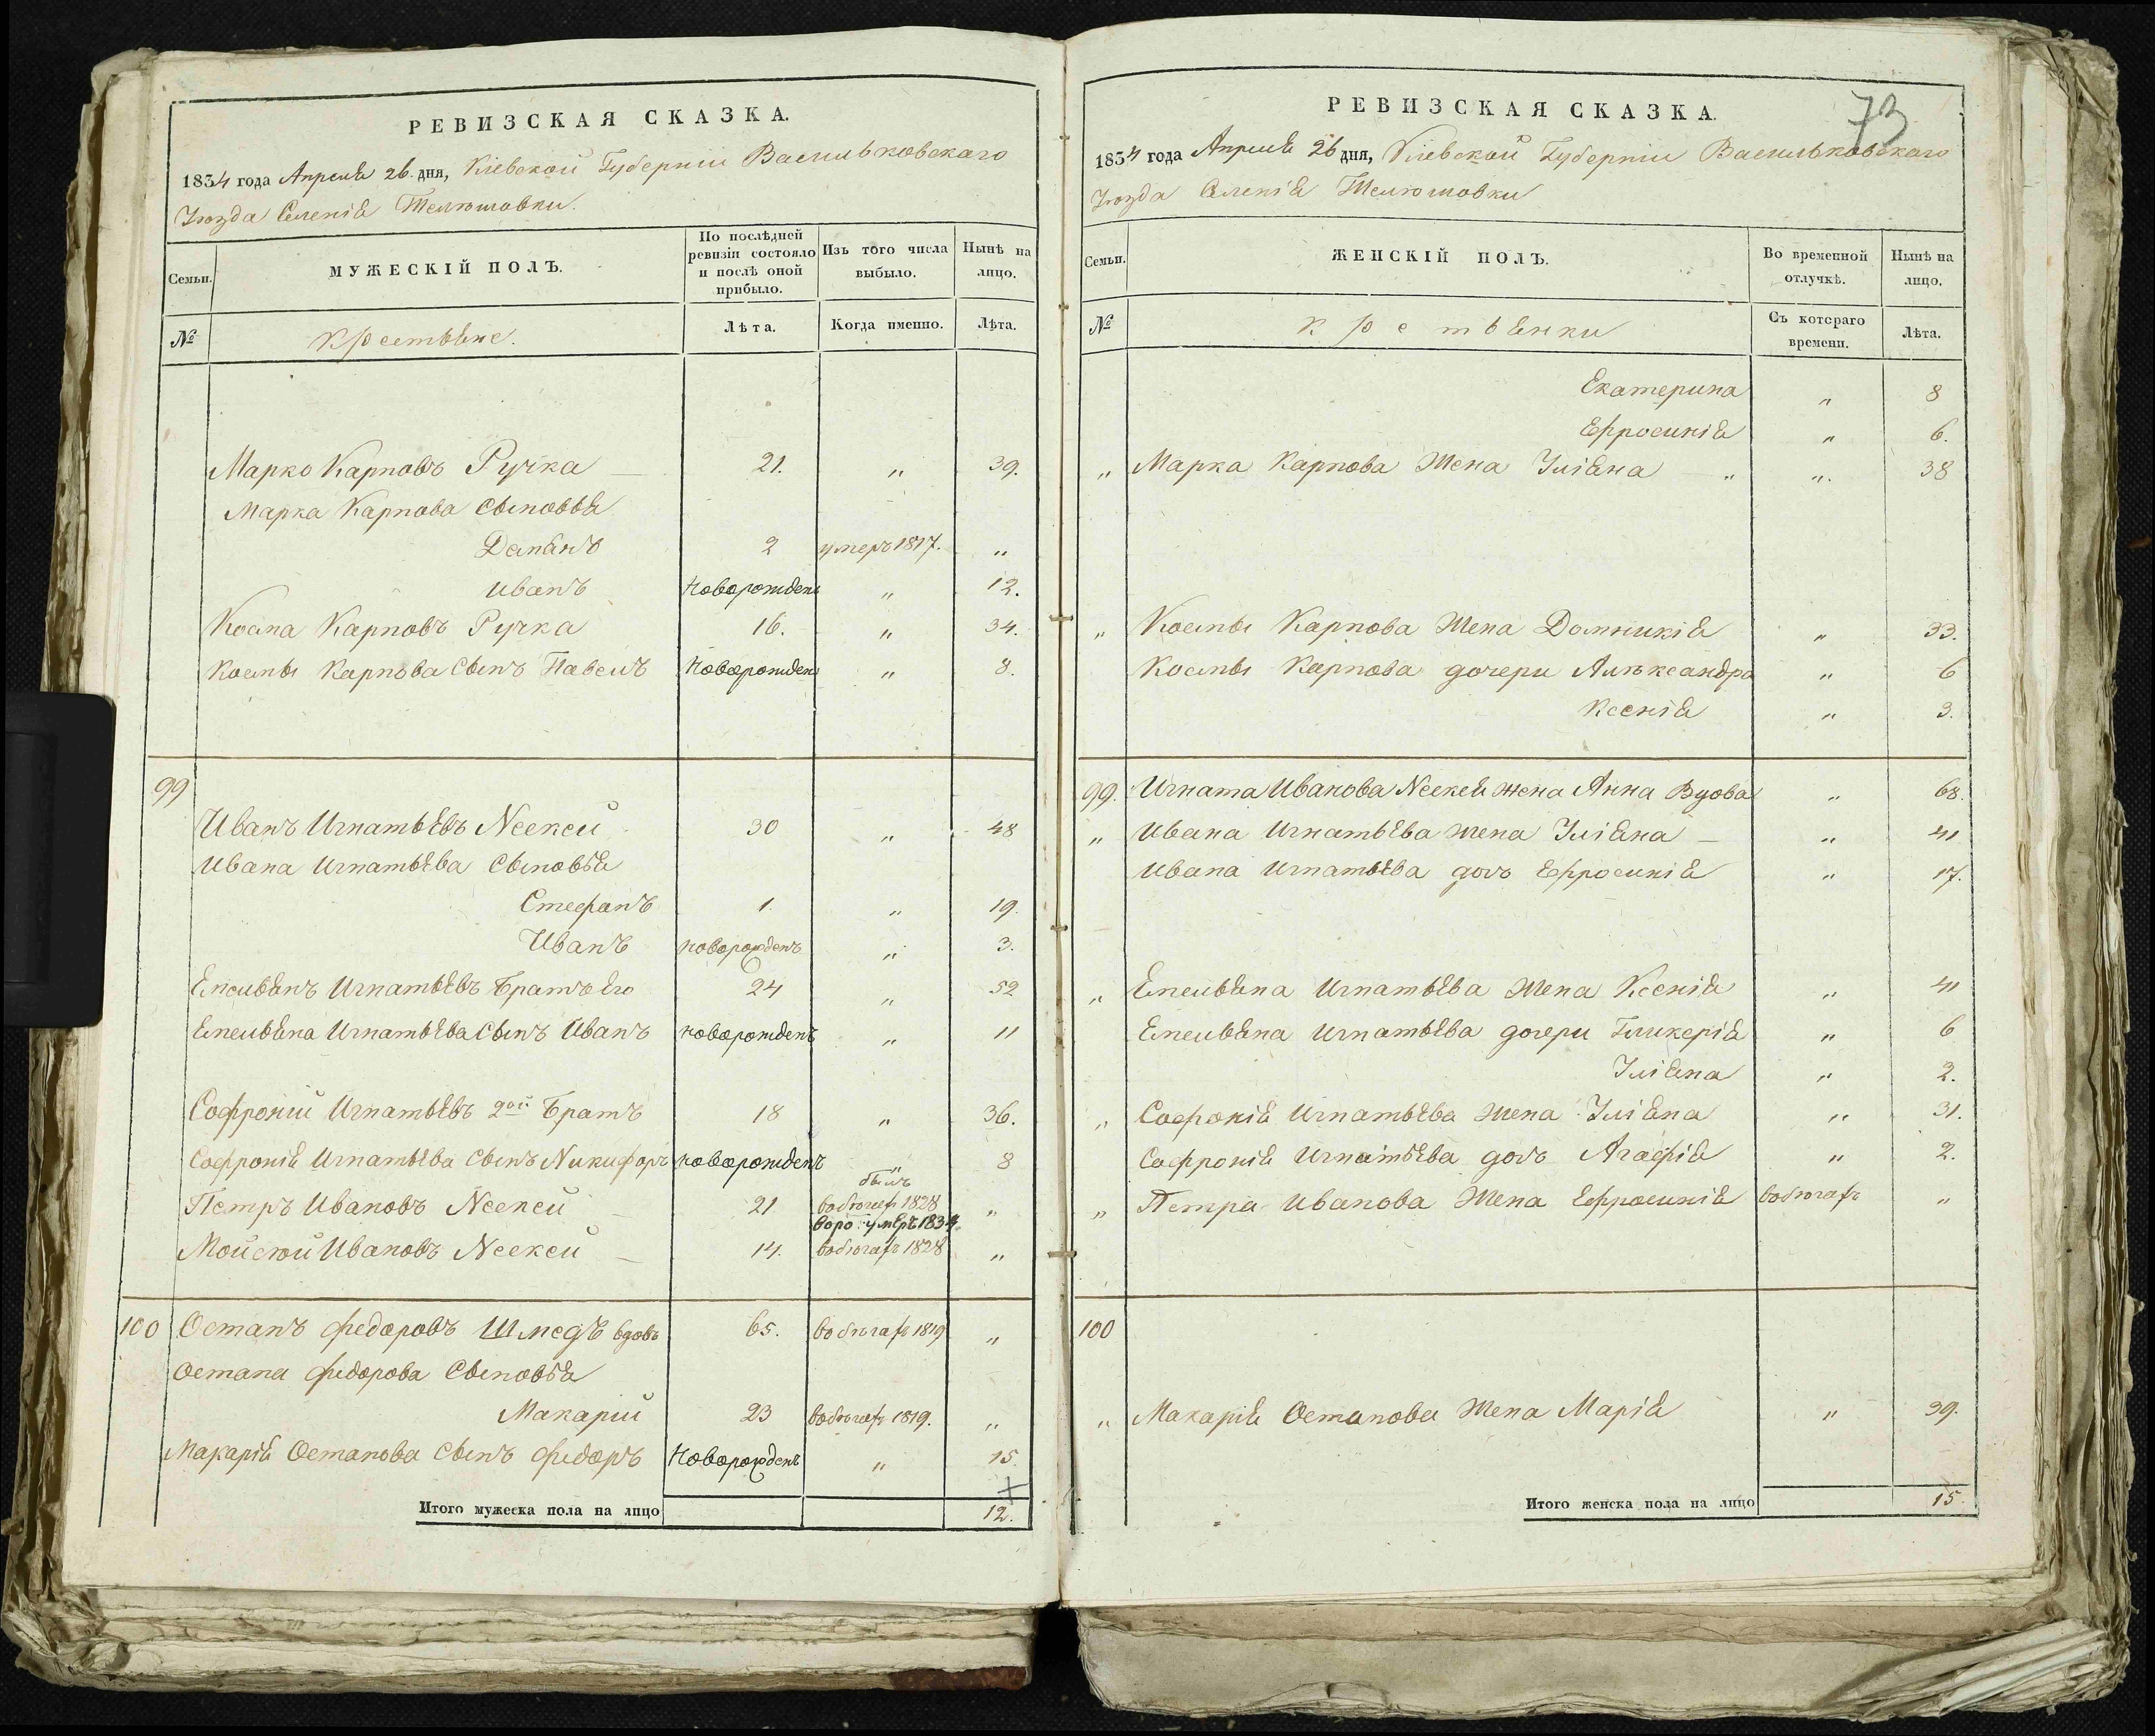 РЕВИЗСКАЯ СКАЗКА.
1834 года Апреля 26 дня, Кіевской Губерніи Васильковскаго
Уѣзда Селенія Телюшовки.
Семьи.
МУЖЕСКІЙ ПОЛЪ.
По послѣдней ревизіи состояло и послѣ оной прибыло.
Изъ того числа выбыло.
Нынѣ на лицо.
№
Крестьяне.
Лѣта.
Когда именно.
Лѣта.
Марко Карповъ Ручка 21. „ 39.
Марка Карпова Сыновья
Демьянъ 2 умеръ 1817. „
Иванъ Новорожденъ „ 12.
Косма Карповъ Ручка 16. „ 34.
Космы Карпова Сынъ Павелъ Новорожденъ „ 8.
99
Иванъ Игнатьевъ 30 „ 48
Ивана Игнатьева Сыновья
Стефанъ 1. „ 19.
Иванъ новорожденъ „ 3.
Емельянъ Игнатьевъ Братъ его 24 „
Емельяна Игнатьева Сынъ Иванъ новорожденъ „ 11
Софроній Игнатьевъ 2ой Братъ 18 „ 36.
Софронія Игнатьева Сынъ Никифоръ новорожденъ „ 8
Петръ Ивановъ 21 былъ
вобѣгахъ 1828
умеръ 1834. „
Мойсей Ивановъ 14. вобѣгахъ 1828 „
100 Остапъ Федоровъ Шмедъ вдовъ 65. вобѣгахъ 1819 „
Остапа Федорова Сыновья
Макарій 23 вобѣгахъ 1819. „
Макарія Остапова Сынъ Федоръ Новорожденъ „ 15.
Итого мужеска пола на лицо 12.
73
РЕВИЗСКАЯ СКАЗКА.
1834 года Апреля 26 дня, Кіевской Губерніи Васильковскаго
Уѣзда Селенія Телюшовки
Семьи.
ЖЕНСКІЙ ПОЛЪ.
Во временной отлучкѣ.
Нынѣ на лицо.
№
Крестьянки
Съ котораго времени.
Лѣта.
Екатерина „ 8
Ефросинія „ 6.
„ Марка Карпова Жена Уліяна „ „. 38
„ Космы Карпова Жена Домникія „ 33.
Космы Карпова дочери Александра „ 6
Ксенія „ 3.
99. Игната Иванова жена Анна Вдова „ 68.
„ Ивана Игнатьева жена Уліяна „ 41
Ивана Игнатьева дочь Ефросинія „ 17.
„ Емельяна Игнатьева Жена Ксенія „ 41
Емельяна Игнатьева дочери Гликерія „ 6
Уліяна „ 2.
„ Софронія Игнатьева Жена Уліяна „ 31.
Софронія Игнатьева дочь Агафія „ 2.
„ Петра Иванова Жена Ефросинія вобѣгахъ „
100
„ Макарія Остапова Жена Марія „ 39.
Итого женска пола на лицо 15.